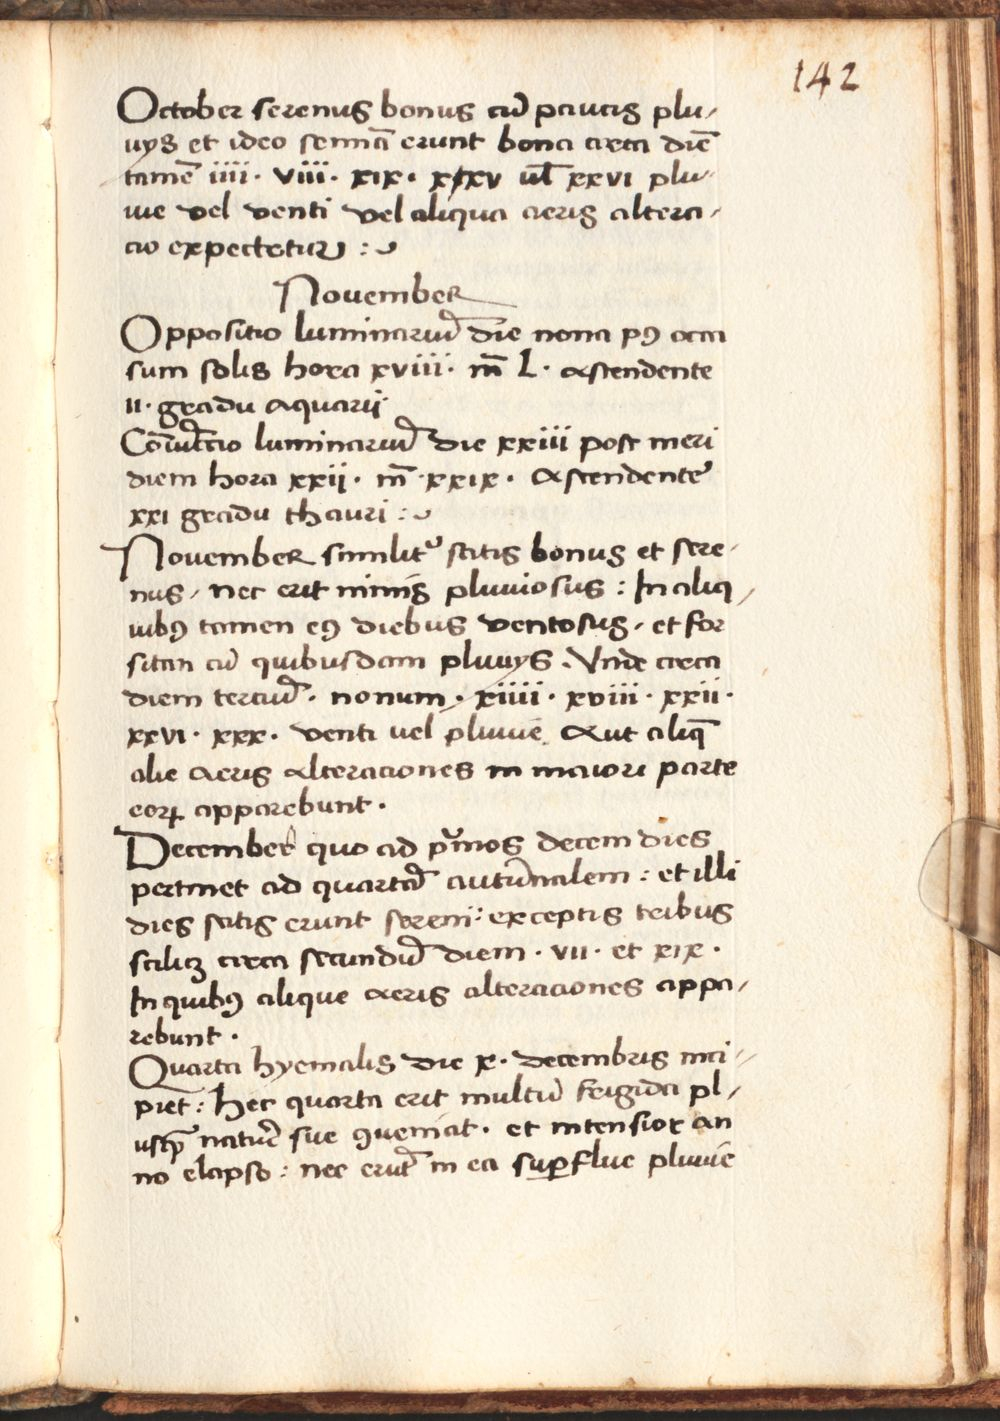 142
October serenus bonus cū paucis plu-
uys et ideo semīa erunt bona circa diē
tamē iiii. viii. xix. xxv ul̄ xxvi plu-
uie vel venti vel aliqua aeris altera-
cio expectetur :
November
Oppositio luminariū die nona pꝰ occa
sum solis hora xviii. m̄ L. Ascendente
II. gradu Aquarii
Cōiūctio luminariū die xxiii post meri
diem hora xxii. m̄ xxix. Ascendente
xxi gradu thauri :
November similitꝰ satis bonus et sere-
nus, nec erit nimis pluuiosus : In aliq-
uibꝰ tamen eꝰ diebus ventosus, et for
sitan cū quibusdam pluuys. Unde circa
diem terciū. nonum. xiiii. xviii. xxii.
xxvi. xxx. venti uel pluuie. Aut aliq̄
alie Aeris Alteraciones in maiori parte
eoꝝ apparebunt.
December quo ad p̄mos decem dies
pertinet ad quartā autūnalem : et illi
dies satis erunt sereni: exceptis tribus
scilicꝫ circa secundū diem. vii. et xix.
In quibꝰ alique Aeris alteraciones appa-
rebunt.
Quarta hyemalis die x. decembris inci-
piet : hec quarta erit multū frigida pl-
usꝙ̄ naturē sue ꝯueniat. et intensior an
no elapso : nec erūt in ea suꝑflue pluuie